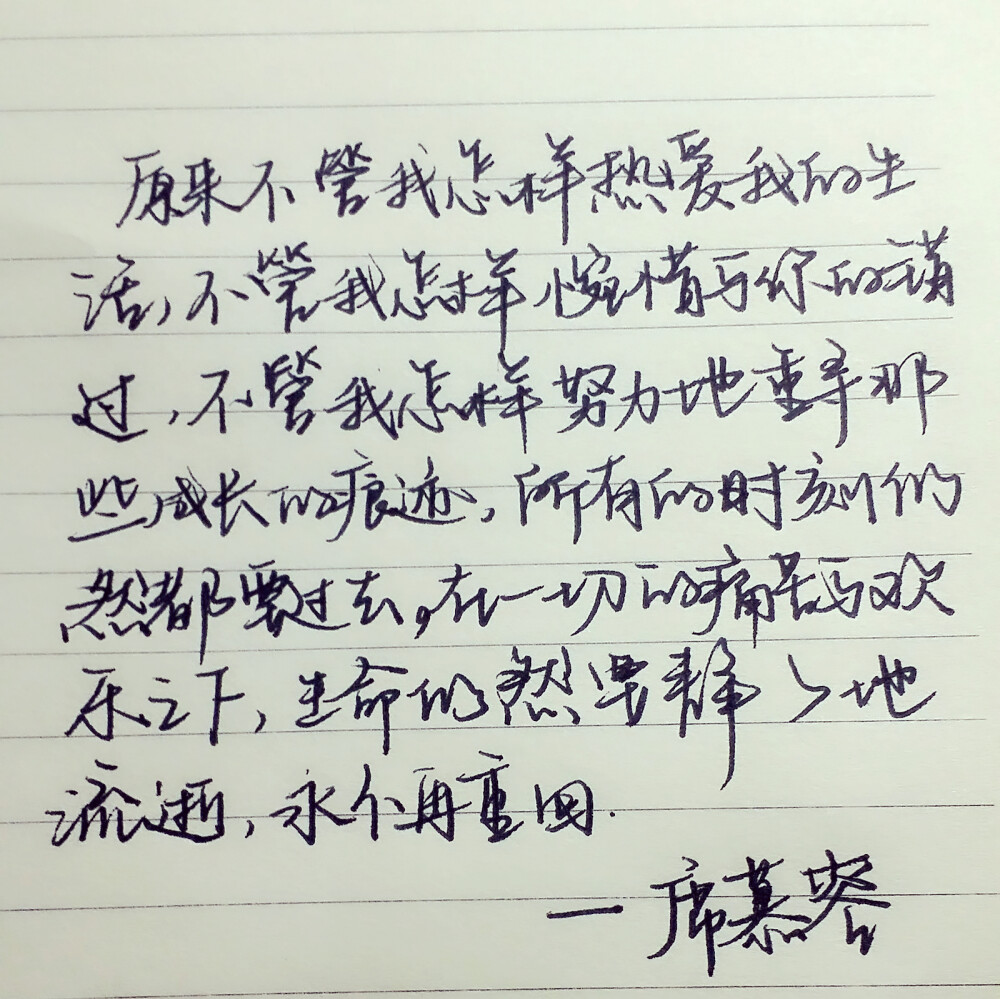 原来不管我怎样热爱我的生
活,不管我怎样惋惜与你的错
过,不管我怎样努力地重寻那
些成长的痕迹,所有的时刻仍
然都要过去。在一切的痛苦与欢
乐之下,生命仍然要静々地
流逝,永不再重回.
一席慕容